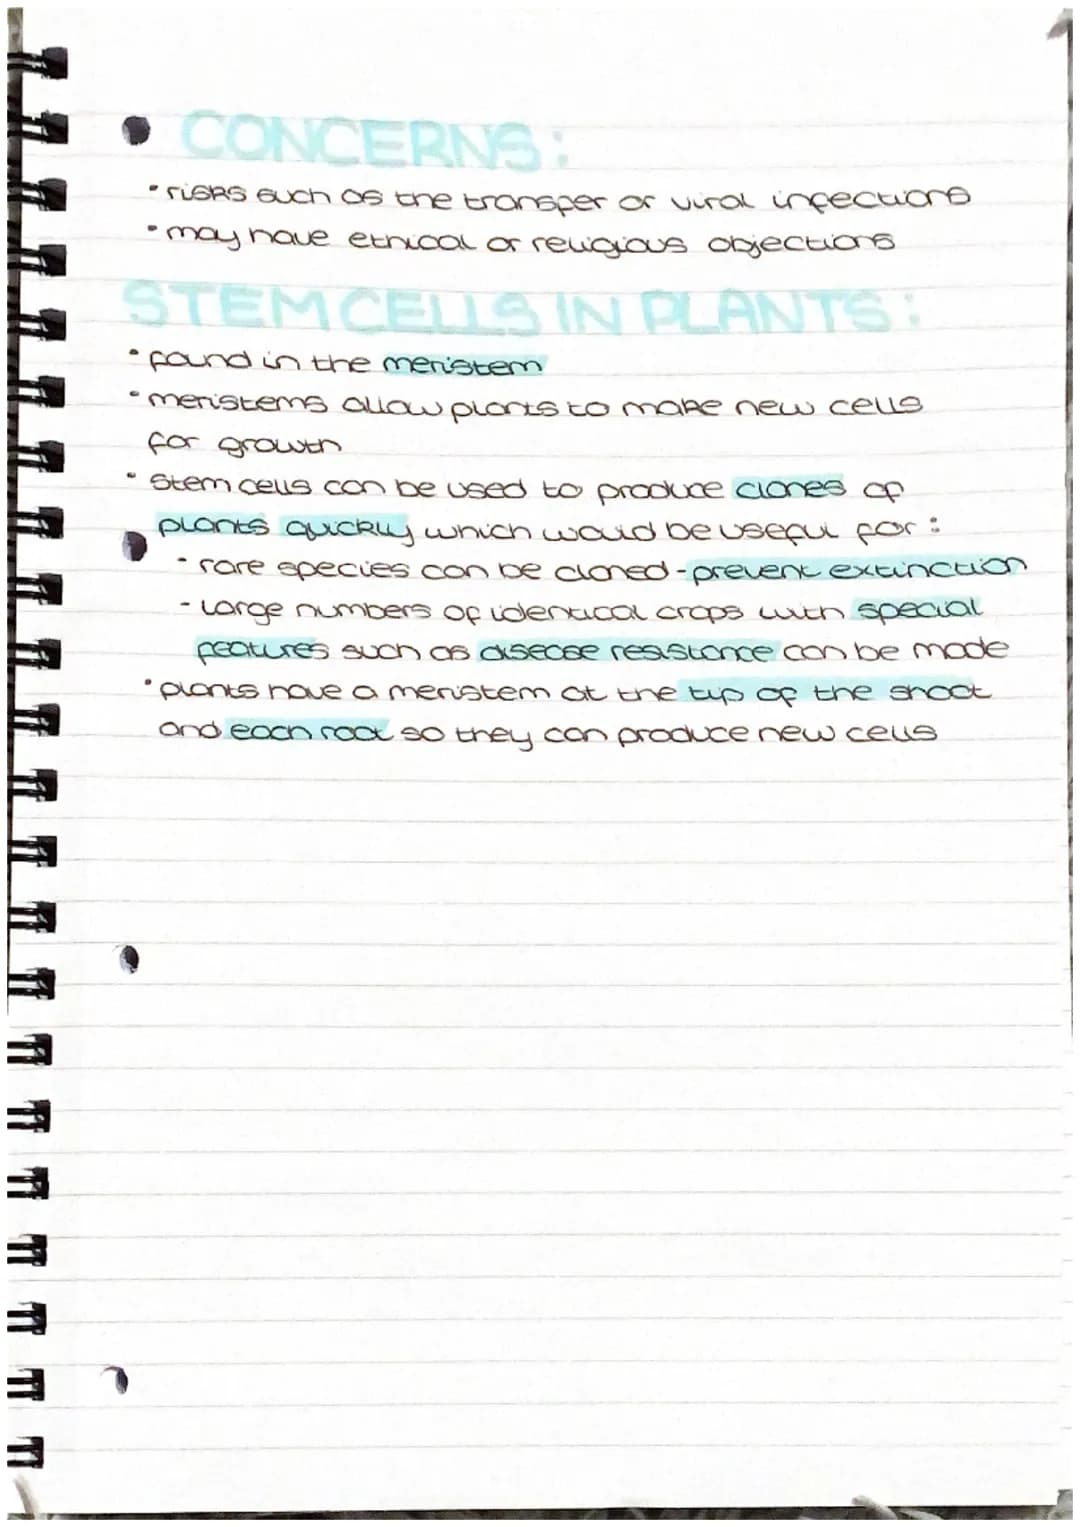 • CONCERNS:
• risks such as the transfer of viral infections
• may have ethical or religious objections
STEM CELLS IN PLANTS:
• found in the meristem
• meristems allow plants to make new cells
for growth
• Stem cells can be used to produce clones of
plants quickly which would be useful for:
- rare species can be cloned - prevent extinction
- Large numbers of identical crops with special
features such as disease resistance can be made
• plants have a meristem at the tip of the shoot
and each root so they can produce new cells